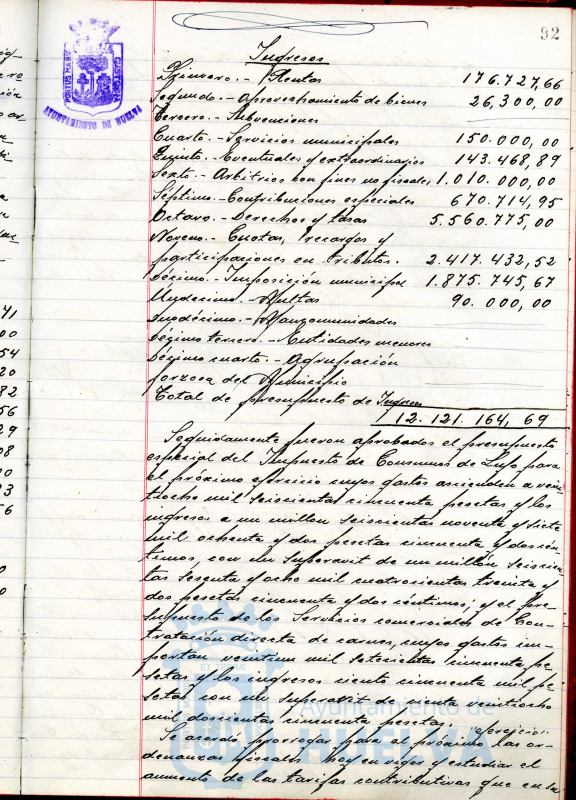 92
PORTUS MARIS
CUSTODIA
AYUNTAMIENTO DE HUELVA
Ingresos
Primero.- Rentas 176.727,66
Segundo.- Aprovechamiento de bienes 26,300,00
Tercero.- Subvenciones
Cuarto.- Servicios municipales 150.000,00
Quinto.- Eventuales y extraordinarios 143.468,89
Sexto.- Arbitrios con fines no fiscales 1.010.000,00
Séptimo.- Contribuciones especiales 670.714,95
Octavo.- Derechos y tasas 5.560.775,00
Noveno.- Cuotas, recargos y
participaciones en tributos. 2.417.432,52
Décimo.- Imposición municipal 1.875.745,67
Undecimo.- Multas 90.000,00
Duodécimo.- Mancomunidades
Décimo tercero.- Entidades menores
Décimo cuarto.- Agrupación
forzosa del Municipio
Total de presupuesto de Ingresos
12.121.164,69
Seguidamente fueron aprobados el presupuesto
especial del Impuesto de Consumos de Lujo para
el próximo ejercicio cuyos gastos ascienden a vein-
tiocho mil seiscientas cincuenta pesetas y los
ingresos a un millon seiscientas noventa y siete
mil ochenta y dos pesetas cincuenta y dos cén-
timos, con un superavit de un millón seiscien-
tas sesenta y ocho mil cuatrocientas treinta y
dos pesetas cincuenta y dos céntimos; y el pre-
supuesto de los Servicios comerciales de Con-
tratación directa de carnes, cuyos gastos im-
portan veintiun mil setecientas cincuenta pe-
setas y los ingresos ciento cincuenta mil pe-
setas con un superavit de ciento veintiocho
mil doscientas cincuenta pesetas.
ejercicio
Se acordó prorrogar para el próximo las or-
denanzas fiscales hoy en vigor y estudiar el
aumento de las tarifas contributivas que en su
Ayuntamiento de
HUELVA
41
00
54
20
82
56
29
08
00
23
56